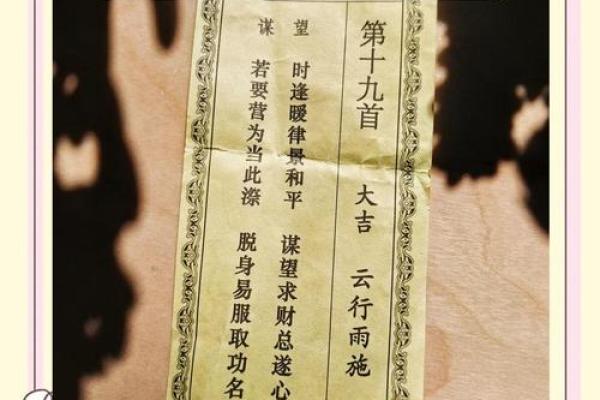 第十九首 大吉 云行雨施
谋 望
时逢暖律景和平 谋望求财总遂心
若要营为当此漈 脱身易服取功名